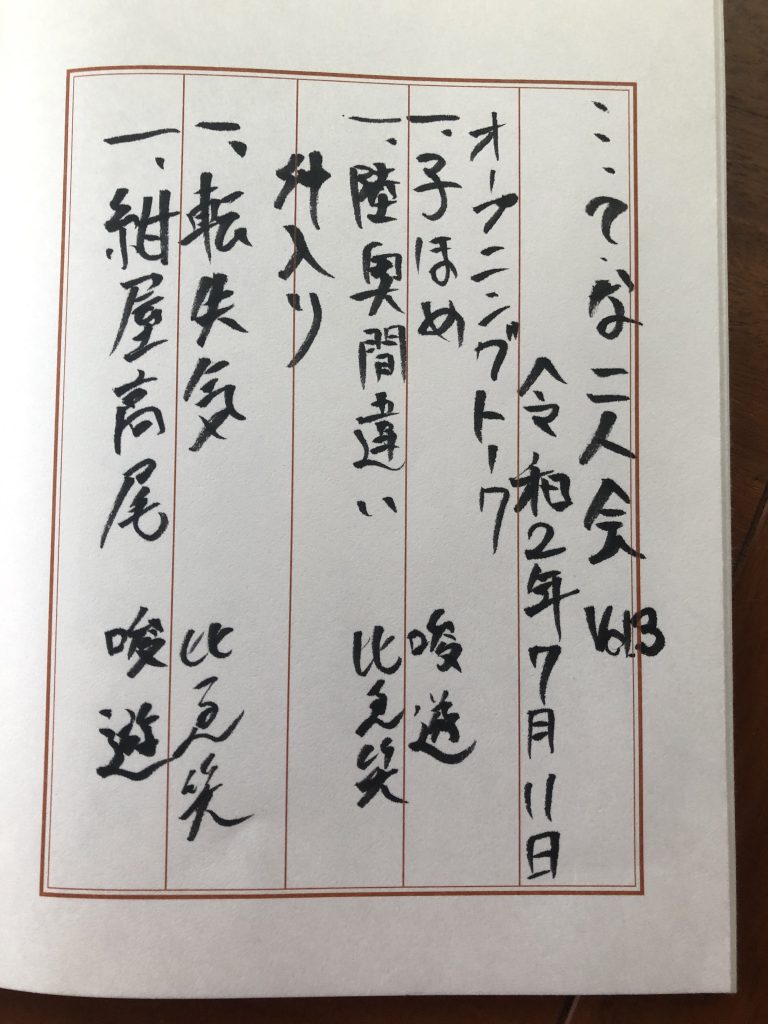 てな二人会 Vol.3
令和2年7月11日
オープニングトーク
一、子ほめ 唆遊
一、陸奥間違い 笑
仲入り
一、転失気 笑
一、紺屋高尾 唆遊